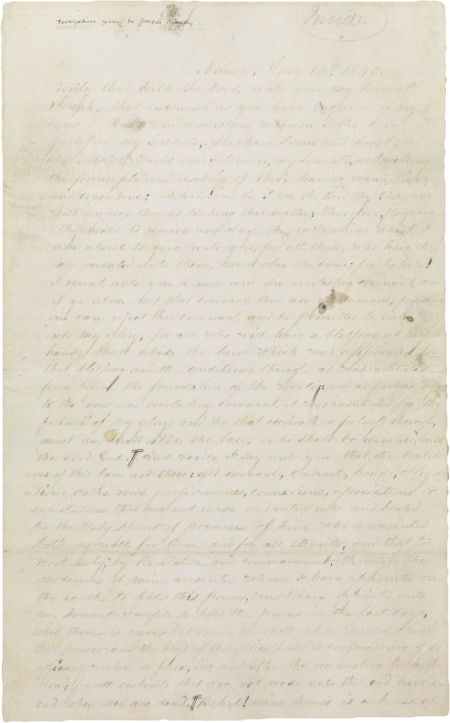 Revelation given to Joseph Smith
Inside
Nauvoo, July 12th 1843.
Verily thus saith the Lord, unto you my servant
Joseph, that inasmuch as you have enquired of my
hand to know and understand wherein I the Lord
justified my servants, Abraham, Isaac and Jacob; as
also Moses, David and Solomon, my servants, as touching
the principle and doctrine of their having many wives
and concubines: Behold! and lo, I am the Lord thy God, and
will answer thee as touching this matter; Therefore, prepare
thy heart to receive and obey the instructions which I
am about to give unto you, for all those, who have this
law revealed unto them, must obey the same; for behold!
I reveal unto you a new and an everlasting covenant, and
if ye abide not that covenant, then are ye damned; for no
one can reject this covenant, and be permitted to enter
into my glory; for all who will have a blessing at my
hands, shall abide the law which was appointed for
that blessing and the conditions thereof, as was instituted
from before the foundation of the world; and as pertaining
to the new and everlasting covenant, it was instituted for the
fulness of my glory; and he that receiveth a fulness thereof,
must and shall abide the law, or he shall be damned, saith
the Lord God. And verily I say unto you, that the condit-
ions of this law are these: All covenants, contracts, bonds, obliga-
-tions, oaths, vows, performances, connexions, associations or
expectations that are not made and entered into and sealed
by the Holy Spirit of promise of him who is anointed
both as well for time and for all eternity, and that too
most holy, by Revelation and commandment, through the
medium of mine anointed whom I have appointed on
the earth to hold this power, and I have appointed unto
my servant Joseph to hold this power in the last days,
and there is never but one on the earth at a time on whom
this power and the keys of this priesthood is conferred, are of no
efficacy, virtue or force, in and after the resurrection from the
dead; for all contracts that are not made unto this end have an
end when men are dead. Behold! mine house is a house of